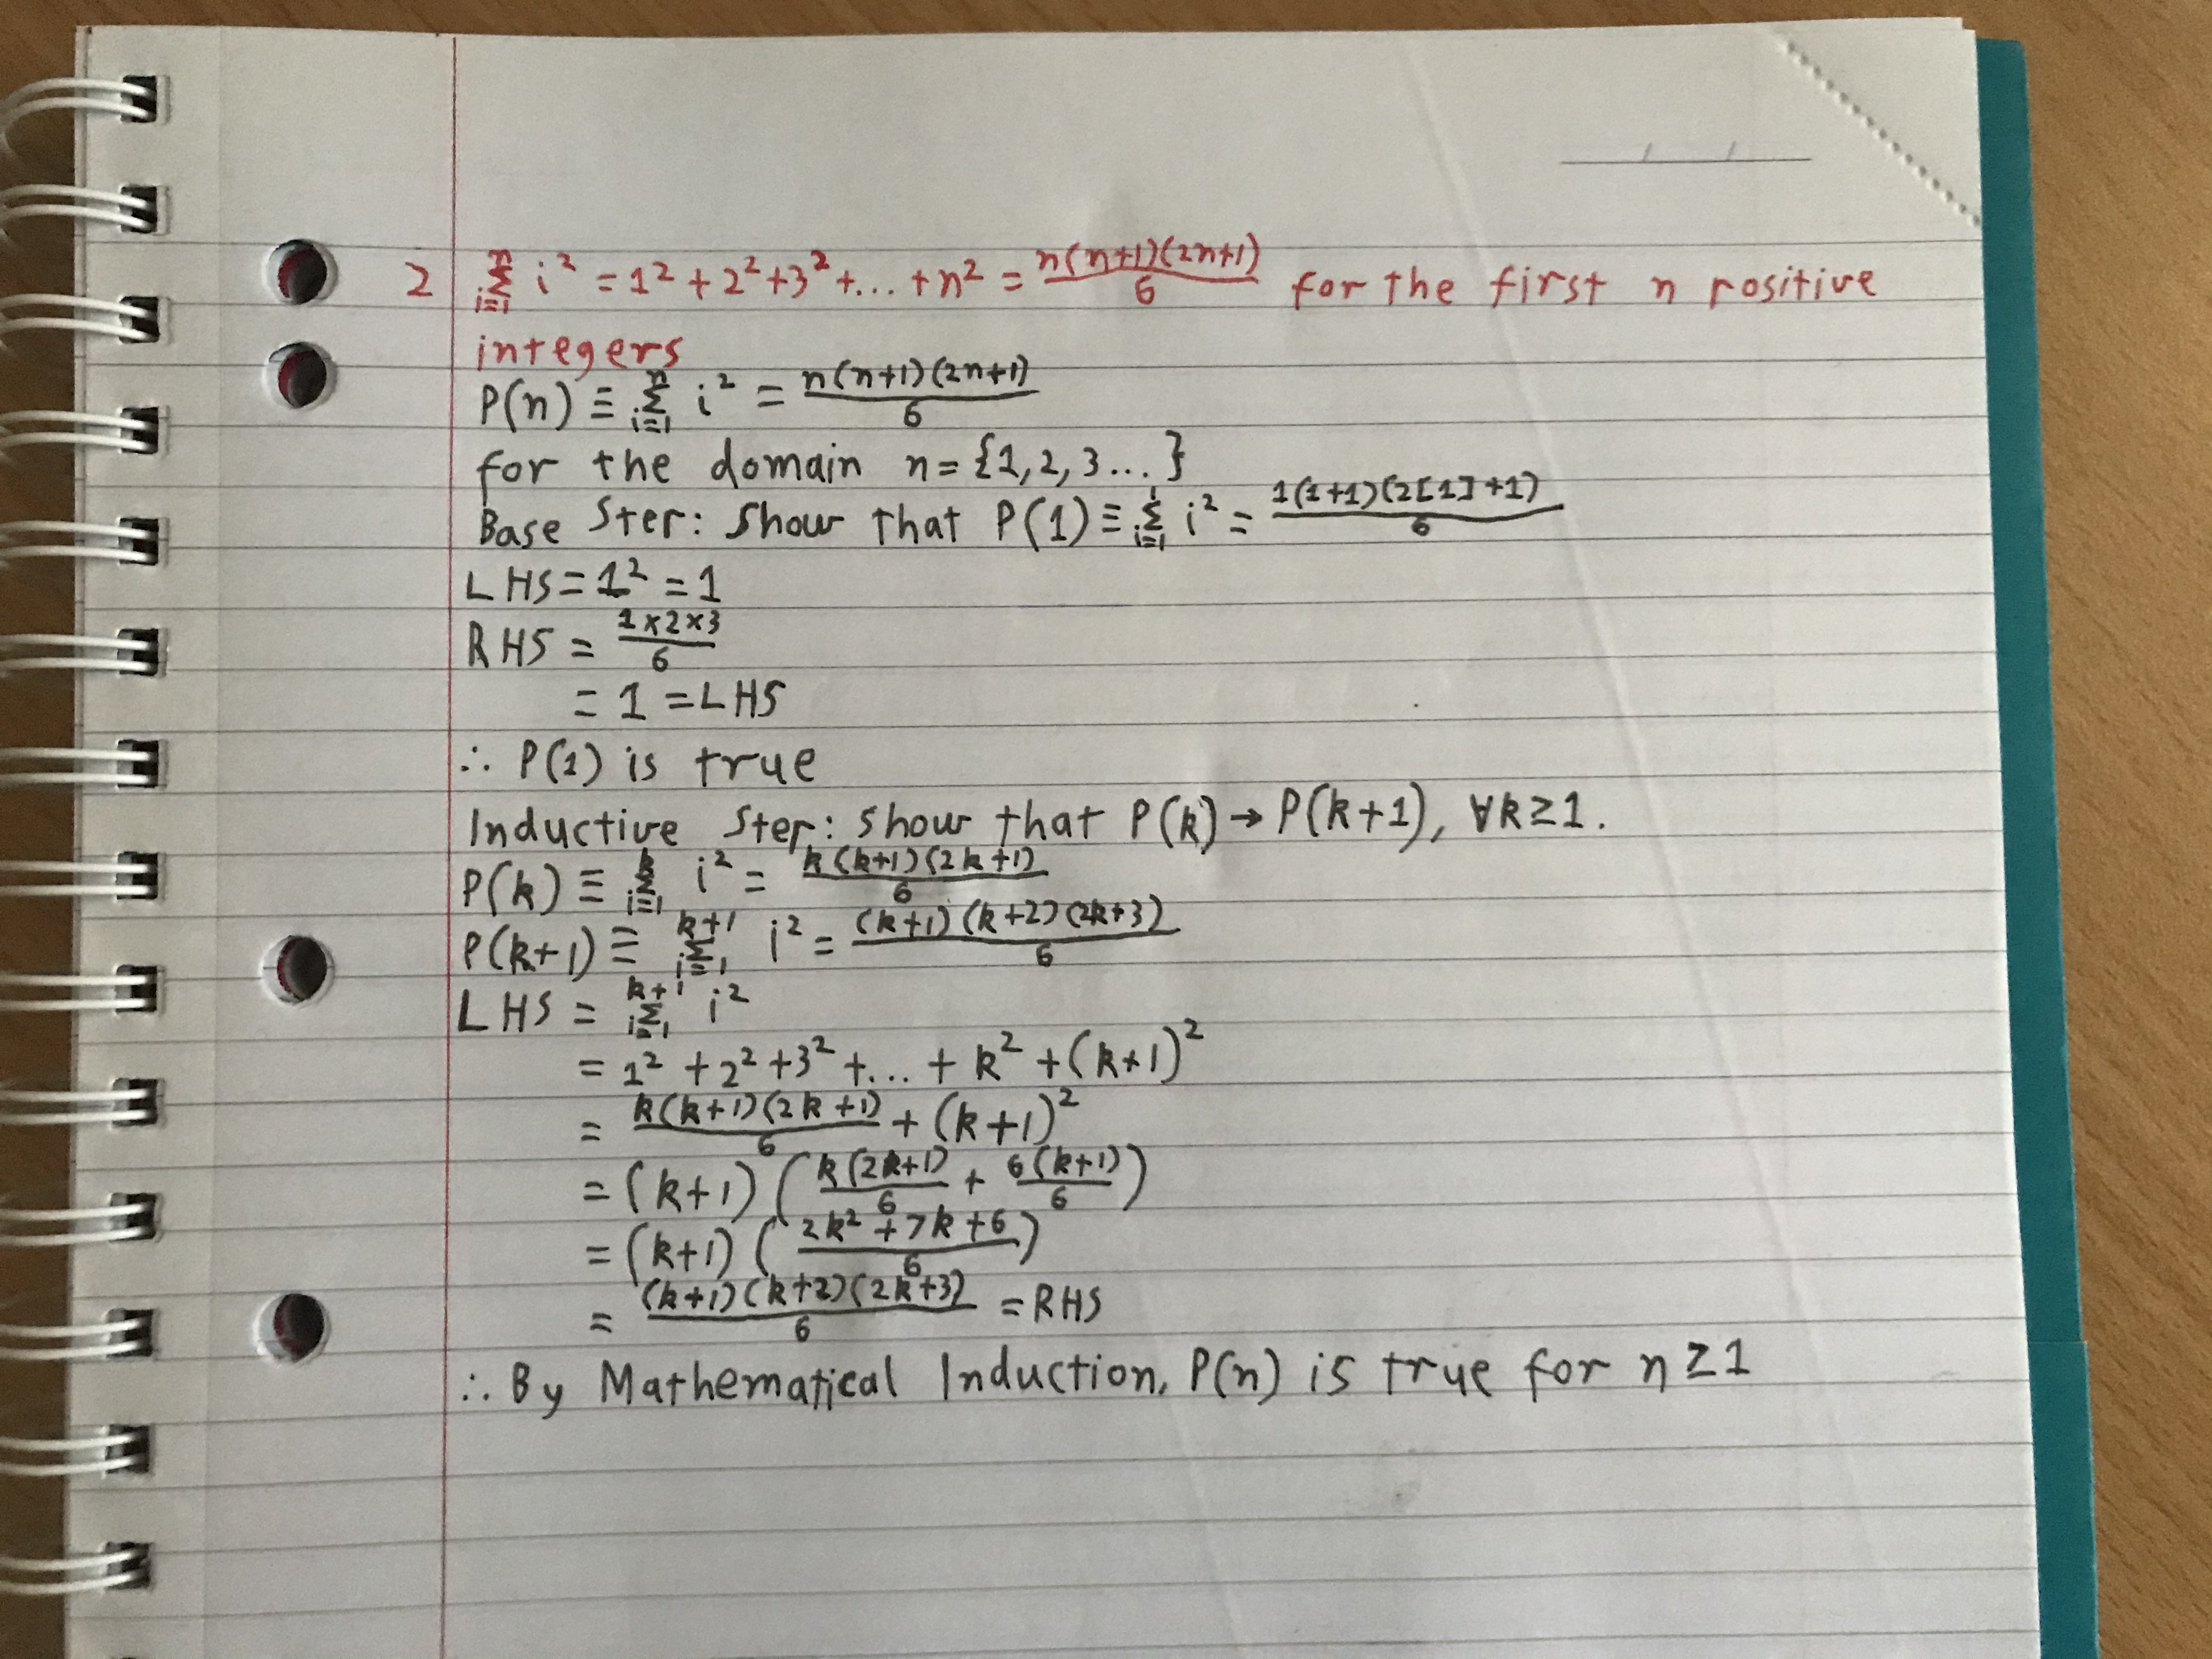 2 ∑_{i=1}^{n} i² = 1² + 2² + 3² + ... + n² = n(n+1)(2n+1)/6 for the first n positive
integers
P(n) ≡ ∑_{i=1}^{n} i² = n(n+1)(2n+1)/6
for the domain n = {1, 2, 3 ... }
Base Step: Show that P(1) ≡ ∑_{i=1}^{1} i² = 1(1+1)(2[1]+1)/6
LHS = 1² = 1
RHS = 1×2×3/6
= 1 = LHS
∴ P(1) is true
Inductive Step: show that P(k) → P(k+1), ∀k≥1.
P(k) ≡ ∑_{i=1}^{k} i² = k(k+1)(2k+1)/6
P(k+1) ≡ ∑_{i=1}^{k+1} i² = (k+1)(k+2)(2k+3)/6
LHS = ∑_{i=1}^{k+1} i²
= 1² + 2² + 3² + ... + k² + (k+1)²
= k(k+1)(2k+1)/6 + (k+1)²
= (k+1) (k(2k+1)/6 + 6(k+1)/6)
= (k+1) ((2k² + 7k + 6)/6)
= (k+1)(k+2)(2k+3)/6 = RHS
∴ By Mathematical Induction, P(n) is true for n ≥ 1